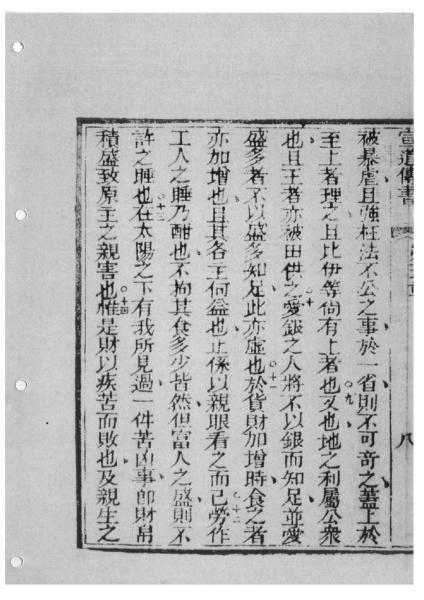 宣道傳書
第五章
八
被暴虐且強枉法不公之事於一省則不可奇之蓋上於
至上者理之且比伊等尙有上者也○九又也地之利屬公衆
也且王者亦被田供之○十愛銀之人將不以銀而知足並愛
盛多者不以盛多知足此亦虛也○十一於貨財加增時食之者
亦加增也且其各主何益也止係以親眼看之而已○十二勞作
工人之睡乃酣也不拘其食多少皆然但富人之盛則不
許之睡也○十三在太陽之下有我所見過一件苦凶事卽財帛
積盛致原主之親害也○十四惟是財以疾苦而敗也及親生之